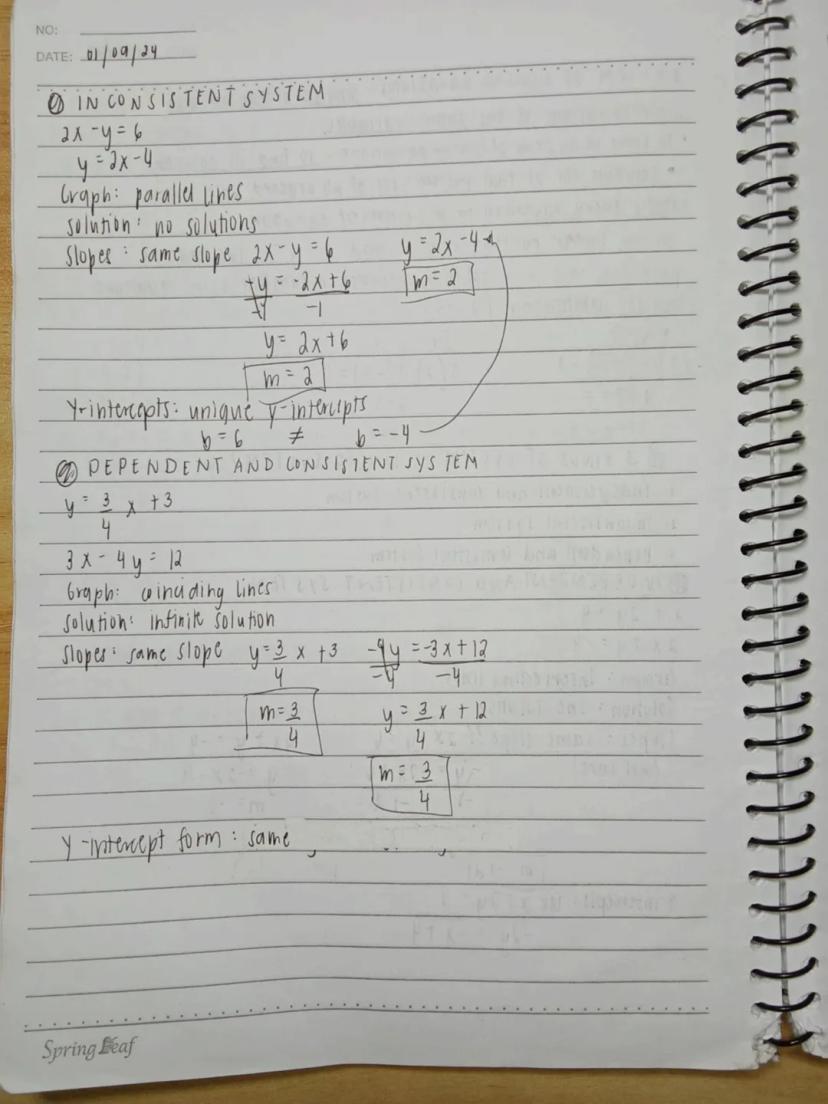 NO:
DATE: 01/09/24
① INCONSISTENT SYSTEM
2x - y = 6
y = 2x - 4
Graph: parallel lines
solution: no solutions
Slopes: same slope 2x - y = 6 y = 2x - 4
-y = -2x + 6 m = 2
-1 -1
y = 2x + 6
m = 2
Y-intercepts: unique y-intercepts
b = 6 ≠ b = -4
② DEPENDENT AND CONSISTENT SYSTEM
y = 3/4 x + 3
3x - 4y = 12
Graph: coinciding lines
solution: infinite solution
Slopes: same slope y = 3/4 x + 3 -4y = -3x + 12
-4 -4
m = 3/4 y = 3/4 x + 12
m = 3/4
Y-intercept form: same
Spring Leaf